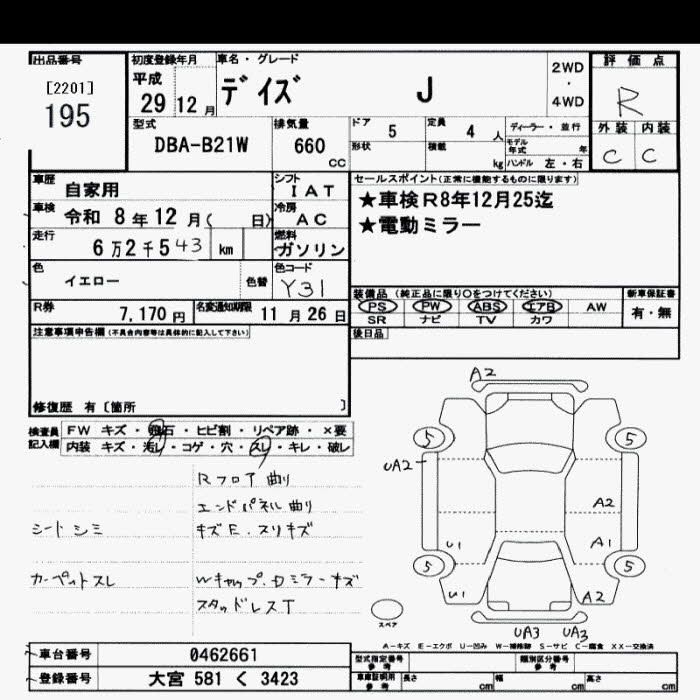 出品番号
[2201]
195
初度登録年月
平成
29 12 月
車名・グレード
デイズ J
2WD
・
4WD
評価点
R
外装 内装
C C
型式
DBA-B21W
排気量
660
cc
ドア 5
定員 4 人
ディーラー・並行
形状
積載 kg
モデル年式 年
ハンドル 左・右
車歴
自家用
シフト
I AT
車検
令和 8 年 12 月( 日)
冷房
AC
走行
6 万 2 千 5 43 km
燃料
ガソリン
色
イエロー
色替
色コード
Y31
セールスポイント(正常に機能するものに限ります)
★車検R8年12月25迄
★電動ミラー
R券
7,170 円
名変通知期限
11 月 26 日
装備品(純正品に限り○をつけてください)
PS PW ABS エアB AW
SR ナビ TV カワ
新車保証書
有・無
後日品
注意事項申告欄(不具合内容等は具体的に記入して下さい)
修復歴 有〔箇所 〕
検査員記入欄
FW キズ・飛石・ヒビ割・リペア跡・×要
内装 キズ・汚レ・コゲ・穴・スレ・キレ・破レ
Rフロア曲り
エンドパネル曲り
シートシミ
キズE.スリキズ
カーペットスレ
Wキャップ.Dミラーキズ
スタッドレスT
A2
5 5
UA2
A2
U1 A1
5 5
U1 A2
UA3 UA3
スペア
A−キズ E−エクボ U−凹み W−補修跡 S−サビ C−腐食 XX−交換済
車台番号
0462661
登録番号
大宮 581 く 3423
型式指定番号
参考
類別区分番号
参考
車庫証明用
参考
長さ cm
幅 cm
高さ cm